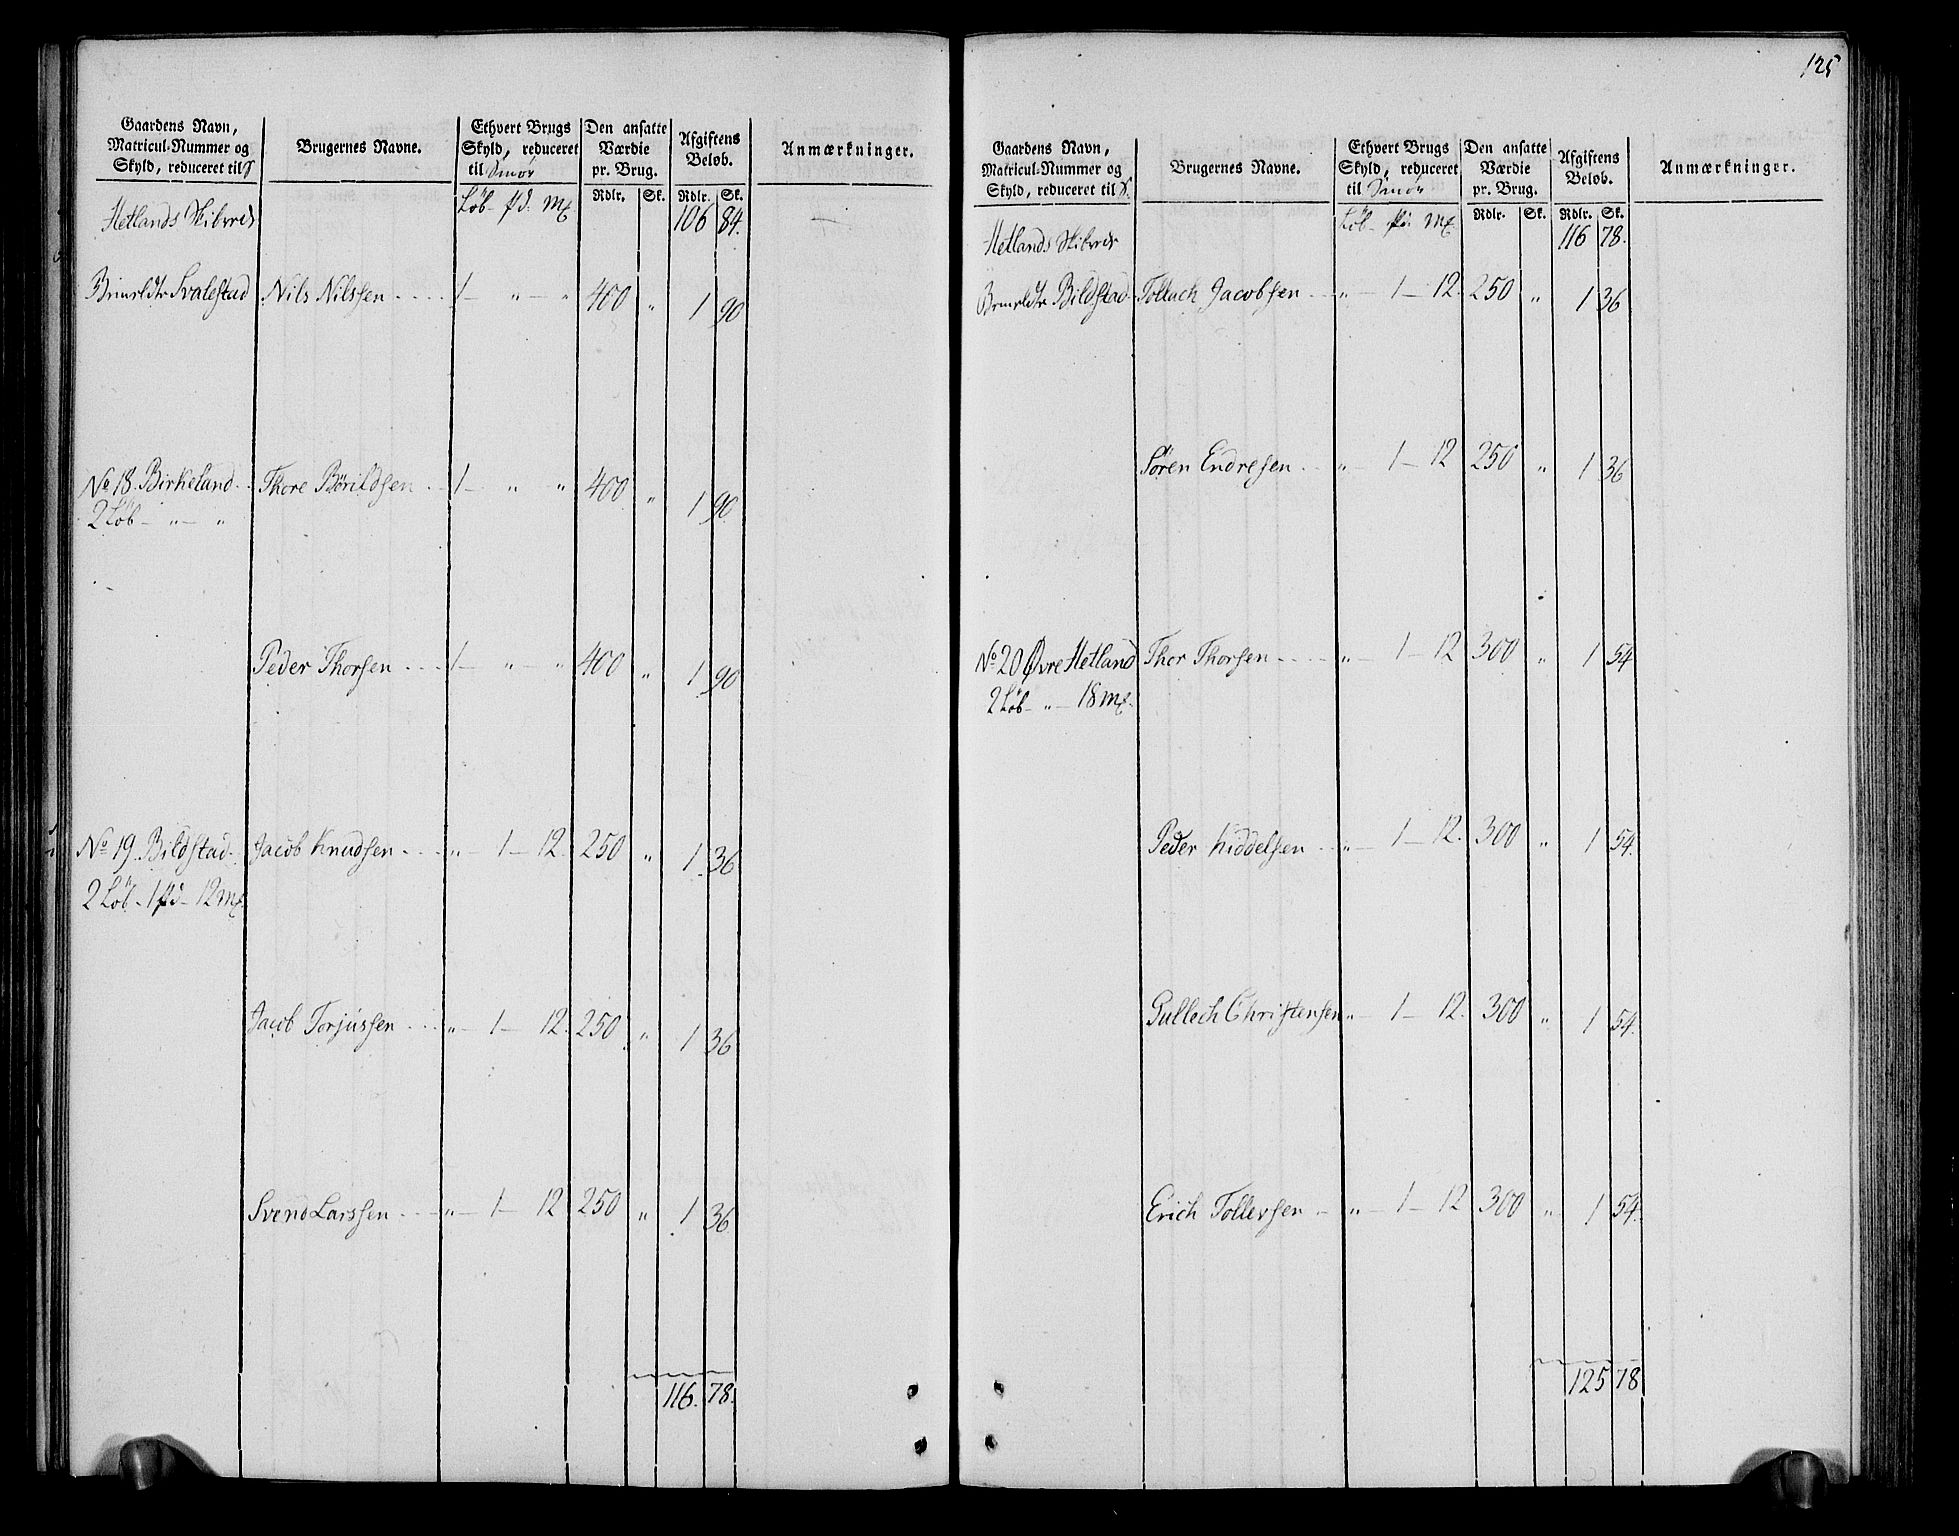 Gaardens Navn,
Matricul-Nummer og
Skyld, reduceret til
Brugernes Navne.
Ethvert Brugs
Skyld, reduceret
til Smör
Den ansatte
Værdie
pr. Brug.
Afgiftens
Beløb.
Anmærkninger.
Löb pd. mk Rdlr. Sk. Rdlr. Sk.
Hetlands Skibrede 106 84.
Svalestad Nils Nilssen 1 " " 400 " 1 90
No 18. Birkeland Thore Börildsen 1 " " 400 " 1 90
2 Löb - " - "
Peder Thorsen 1 " " 400 " 1 90
No 19. Bildstad Jacob Knudsen " 1 12. 250 " 1 36
2 Löb - 1 pd - 12 mk
Jacob Torjussen " 1 12. 250 " 1 36
Svend Larssen " 1 12 250 " 1 36
116. 78.
125
Gaardens Navn,
Matricul-Nummer og
Skyld, reduceret til
Brugernes Navne.
Ethvert Brugs
Skyld, reduceret
til Smör
Den ansatte
Værdie
pr. Brug.
Afgiftens
Beløb.
Anmærkninger.
Löb pd. mk Rdlr. Sk. Rdlr. Sk.
Hetlands Skibrede 116 78.
Bildstad Tollach Jacobsen " 1 12. 250 " 1 36
Sören Endresen " 1 12 250 " 1 36
No 20 Øvre Hetland Thor Thorsen " 1 12 300 " 1 54
2 Löb - " - 18 mk.
Peder Kiddelsen " 1 12. 300 " 1 54.
Gullech Christensen " 1 12. 300 " 1 54.
Erich Tollevsen " 1 12 300 " 1 54.
125 78